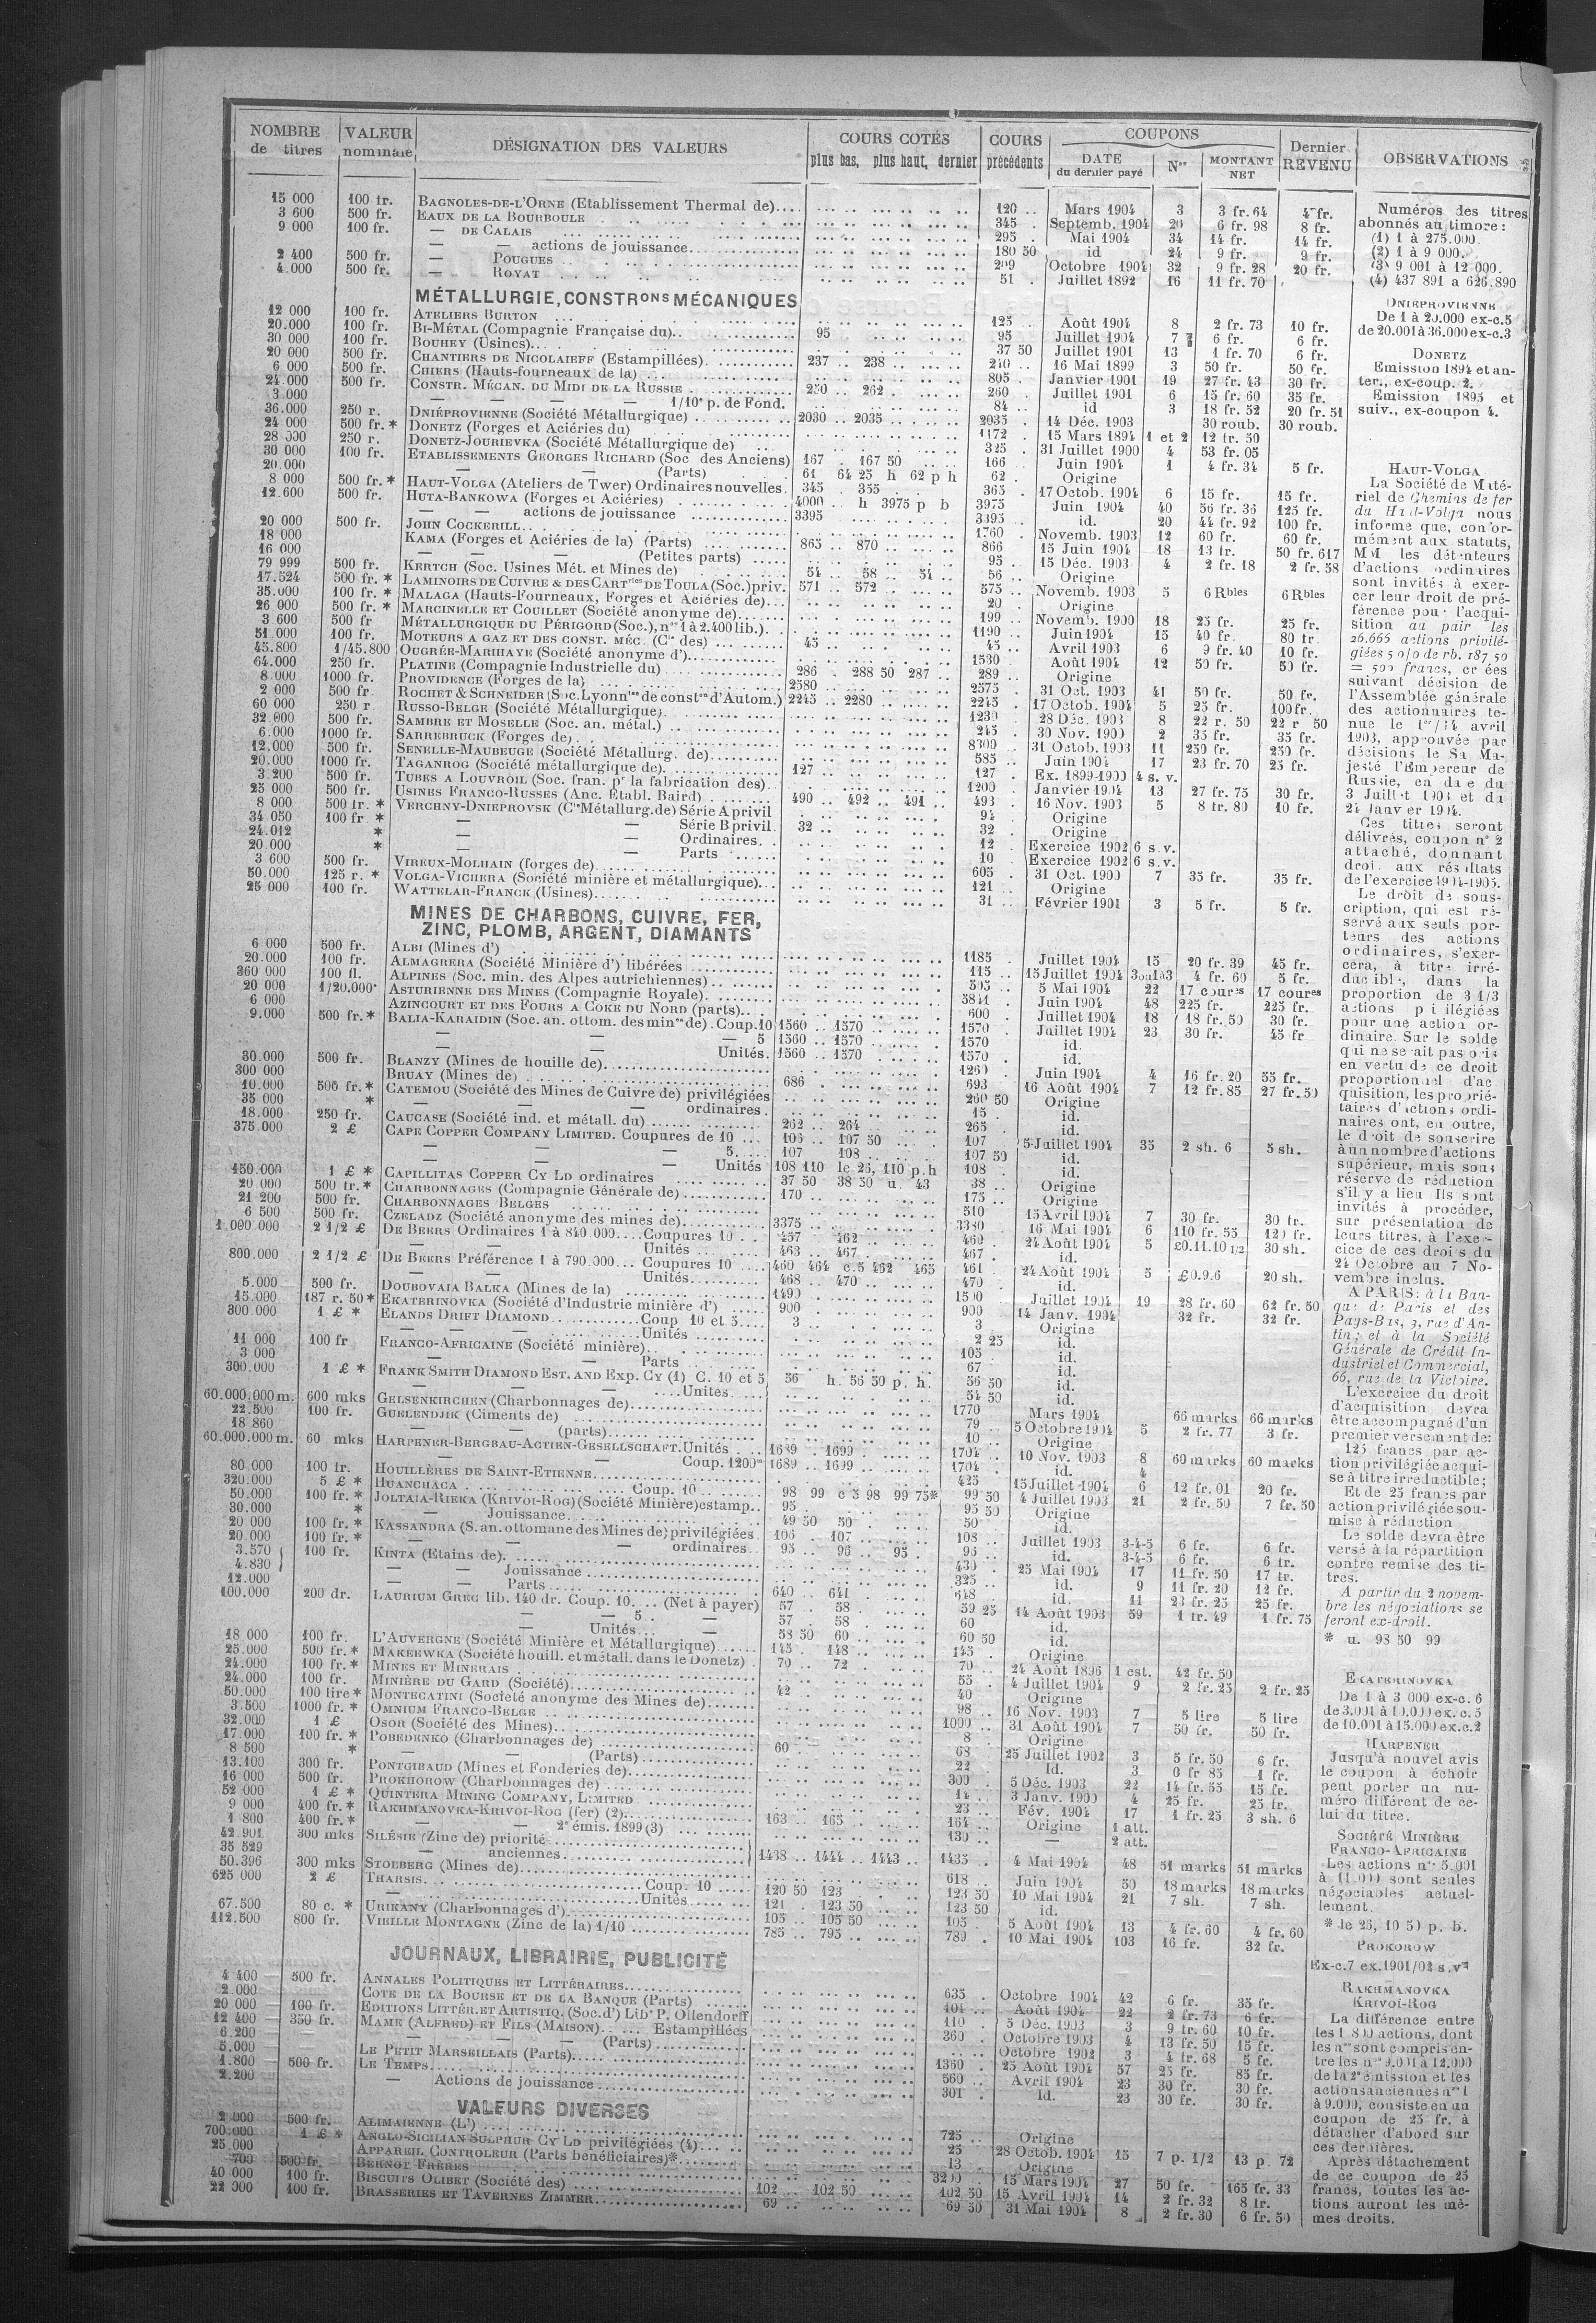 NOMBRE de titres | VALEUR nominale | DÉSIGNATION DES VALEURS | COURS COTÉS plus bas, plus haut, dernier | COURS précédents | COUPONS DATE du dernier payé | Nos | MONTANT NET | Dernier REVENU | OBSERVATIONS
15 000 100 fr. BAGNOLES-DE-L'ORNE (Etablissement Thermal de).... 120 .. Mars 1904 3 3 fr. 64 4 fr.
3 600 500 fr. EAUX DE LA BOURBOULE 345 . Septemb. 1904 20 6 fr. 98 8 fr.
9 000 100 fr. — DE CALAIS 295 . Mai 1904 34 14 fr. 14 fr.
— — actions de jouissance 180 50 id 24 9 fr. 9 fr.
2 400 500 fr. — POUGUES 209 Octobre 1904 32 9 fr. 28 20 fr.
4.000 500 fr. — ROYAT 51 . Juillet 1892 16 11 fr. 70
MÉTALLURGIE, CONSTRons MÉCANIQUES
12 000 100 fr. ATELIERS BURTON 125 .. Août 1904 8 2 fr. 73 10 fr.
20.000 100 fr. BI-MÉTAL (Compagnie Française du) 95 95 Juillet 1904 7 6 fr. 6 fr.
30 000 100 fr. BOUHEY (Usines) 37 50 Juillet 1901 13 1 fr. 70 6 fr.
20 000 500 fr. CHANTIERS DE NICOLAIEFF (Estampillées) 237 .. 238 240 .. 16 Mai 1899 3 50 fr. 50 fr.
6 000 500 fr. CHIERS (Hauts-fourneaux de la) 805 . Janvier 1901 19 27 fr. 43 30 fr.
24.000 500 fr. CONSTR. MÉCAN. DU MIDI DE LA RUSSIE 250 .. 262 260 . Juillet 1901 6 15 fr. 60 35 fr.
3.000 — — — 1/10e p. de Fond. 84 .. id 3 18 fr. 52 20 fr. 51
36.000 250 r. DNIÉPROVIENNE (Société Métallurgique) 2030 .. 2035 2035 . 14 Déc. 1903 30 roub. 30 roub.
24 000 500 fr. * DONETZ (Forges et Aciéries du) 1172 . 15 Mars 1894 1 et 2 12 fr. 50
28 000 250 r. DONETZ-JOURIEVKA (Société Métallurgique de) 325 . 31 Juillet 1900 4 53 fr. 05
30 000 100 fr. ETABLISSEMENTS GEORGES RICHARD (Soc des Anciens) 167 .. 167 50 166 . Juin 1904 1 4 fr. 34 5 fr.
20.000 — — (Parts) 61 64 25 h 62 p h 62 . Origine
8 000 500 fr. * HAUT-VOLGA (Ateliers de Twer) Ordinaires nouvelles. 345 . 355 365 . 17 Octob. 1904 6 15 fr. 15 fr.
12.600 500 fr. HUTA-BANKOWA (Forges et Aciéries) 4000 .. h 3975 p b 3975 Juin 1904 40 56 fr. 36 125 fr.
— — actions de jouissance 3395 3395 .. id. 20 44 fr. 92 100 fr.
20 000 500 fr. JOHN COCKERILL 1760 . Novemb. 1903 12 60 fr. 60 fr.
18 000 KAMA (Forges et Aciéries de la) (Parts) 865 .. 870 866 15 Juin 1904 18 13 fr. 50 fr. 617
16 000 — — — (Petites parts) 95 .. 15 Déc. 1903 4 2 fr. 18 2 fr. 58
79 999 500 fr. KERTCH (Soc. Usines Mét. et Mines de) 54 .. 58 .. 54 .. 56 .. Origine
17.524 500 fr. * LAMINOIRS DE CUIVRE & DES CARTries DE TOULA (Soc.) priv. 571 .. 572 575 .. Novemb. 1903 5 6 Rbles 6 Rbles
35.000 100 fr. * MALAGA (Hauts-Fourneaux, Forges et Aciéries de) 20 . Origine
26 000 500 fr. * MARCINELLE ET COUILLET (Société anonyme de) 199 .. Novemb. 1900 18 25 fr. 25 fr.
3 600 500 fr MÉTALLURGIQUE DU PÉRIGORD (Soc.), nos 1 à 2.400 lib.) 1190 .. Juin 1904 15 40 fr. 80 fr.
51 000 100 fr. MOTEURS A GAZ ET DES CONST. MÉC. (Cie des) 45 45 .. Avril 1903 6 9 fr. 40 10 fr.
45.800 1/45.800 OUGRÉE-MARIHAYE (Société anonyme d') 1530 .. Août 1904 12 50 fr. 50 fr.
64.000 250 fr. PLATINE (Compagnie Industrielle du) 286 . 288 50 287 .. 289 .. Origine
8.000 1000 fr. PROVIDENCE (Forges de la) 2580 2575 . 31 Oct. 1903 41 50 fr. 50 fr.
2 000 500 fr. ROCHET & SCHNEIDER (Soc. Lyonnse de conston d'Autom.) 2245 .. 2280 2245 . 17 Octob. 1904 5 25 fr. 100 fr.
60 000 250 r RUSSO-BELGE (Société Métallurgique) 1230 . 28 Déc. 1903 8 22 r. 50 22 r 50
32.000 500 fr. SAMBRE ET MOSELLE (Soc. an. métal.) 245 . 30 Nov. 1900 2 35 fr. 35 fr.
6.000 1000 fr. SARREBRUCK (Forges de) 8300 .. 31 Octob. 1903 11 250 fr. 250 fr.
12.000 500 fr. SENELLE-MAUBEUGE (Société Métallurg. de) 585 .. Juin 1904 17 23 fr. 70 25 fr.
20.000 1000 fr. TAGANROG (Société métallurgique de) 127 127 . Ex. 1899-1900 4 s. v.
3.200 500 fr. TUBES A LOUVROIL (Soc. fran. pr la fabrication des) 1200 . Janvier 1904 13 27 fr. 75 30 fr.
25 000 500 fr. USINES FRANCO-RUSSES (Anc. Etabl. Baird) 490 .. 492 .. 491 .. 493 . 16 Nov. 1903 5 8 fr. 80 10 fr.
8 000 500 fr. * VERCHNY-DNIEPROVSK (Cie Métallurg. de) Série A privil 94 . Origine
34 050 100 fr * — — Série B privil. 32 32 . Origine
24.012 * — — Ordinaires 12 . Exercice 1902 6 s. v.
20.000 * — — Parts 10 . Exercice 1902 6 s. v.
3 600 500 fr. VIREUX-MOLHAIN (forges de) 605 . 31 Oct. 1900 7 35 fr. 35 fr.
50.000 125 r. * VOLGA-VICHERA (Société minière et métallurgique) 121 .. Origine
25 000 100 fr. WATTELAR-FRANCK (Usines) 31 .. Février 1901 3 5 fr. 5 fr.
MINES DE CHARBONS, CUIVRE, FER,
ZINC, PLOMB, ARGENT, DIAMANTS
6 000 500 fr. ALBI (Mines d') 1185 . Juillet 1904 15 20 fr. 39 45 fr.
20.000 100 fr. ALMAGRERA (Société Minière d') libérées 115 .. 15 Juillet 1904 4 fr. 60 5 fr.
360 000 100 fl. ALPINES (Soc. min. des Alpes autrichiennes) 505 .. 5 Mai 1904 22 17 coures 17 coures
20 000 1/20.000e ASTURIENNE DES MINES (Compagnie Royale) 5841 . Juin 1904 48 225 fr. 225 fr.
6 000 AZINCOURT ET DES FOURS A COKE DU NORD (parts) 600 . Juillet 1904 18 18 fr. 50 30 fr.
9.000 500 fr. * BALIA-KARAIDIN (Soc. an. ottom. des mines de) . Coup. 10 1560 .. 1570 1570 . Juillet 1904 23 30 fr. 45 fr
— — — 5 1560 .. 1570 1570 id.
— — Unités. 1560 .. 1570 1570 . id.
30.000 500 fr. BLANZY (Mines de houille de) 1260 . Juin 1904 4 16 fr. 20 55 fr.
300 000 BRUAY (Mines de) 686 693 16 Août 1904 7 12 fr. 85 27 fr. 50
10.000 500 fr. * CATEMOU (Société des Mines de Cuivre de) privilégiées 260 50 Origine
35 000 * — — ordinaires 15 . id.
18.000 250 fr. CAUCASE (Société ind. et métall. du) 262 .. 264 265 . id.
375.000 2 £ CAPE COPPER COMPANY LIMITED. Coupures de 10 106 .. 107 50 107 5 Juillet 1904 35 2 sh. 6 5 sh.
— — 5 107 108 107 50 id.
— — Unités 108 110 le 26, 110 p. h 108 . id.
150.000 1 £ * CAPILLITAS COPPER CY LD ordinaires 37 50 38 50 u. 43 38 .. Origine
20 000 500 fr. * CHARBONNAGES (Compagnie Générale de) 170 175 .. Origine
21 200 500 fr. CHARBONNAGES BELGES 510 15 Avril 1904 7 30 fr. 30 fr.
6 500 500 fr. CZELADZ (Société anonyme des mines de) 3375 3380 16 Mai 1904 6 110 fr. 55 120 fr.
1.000 000 2 1/2 £ DE BEERS Ordinaires 1 à 840 000 .... Coupures 10 457 462 460 . 24 Août 1904 5 £0.11.10 1/2 30 sh.
— Unités 463 .. 467 467 . id.
800.000 2 1/2 £ DE BEERS Préférence 1 à 790.000 ... Coupures 10 460 464 c.5 462 465 461 24 Août 1904 5 £0.9.6 20 sh.
— Unités 468 .. 470 470 . id.
5.000 500 fr. DOUBOVAIA BALKA (Mines de la) 1490 1500 Juillet 1904 19 28 fr. 60 62 fr. 50
15.000 187 r. 50 * EKATERINOVKA (Société d'Industrie minière d') 900 900 14 Janv. 1904 32 fr. 32 fr.
300.000 1 £ * ELANDS DRIFT DIAMOND Coup 10 et 5 3 3 Origine
— Unités 2 25 id.
11 000 100 fr FRANCO-AFRICAINE (Société minière) 105 id.
3 000 — Parts 67 id.
300.000 1 £ * FRANK SMITH DIAMOND EST. AND EXP. CY (1) C. 10 et 5 56 h. 56 50 p. h. 56 50 id.
— Unités 54 50 id.
60.000.000 m. 600 mks GELSENKIRCHEN (Charbonnages de) 1770 Mars 1904 66 marks 66 marks
22.500 100 fr. GUELENDJIK (Ciments de) 79 5 Octobre 1904 5 2 fr. 77 3 fr.
18 860 — (parts) 10 Origine
60.000.000 m. 60 mks HARPENER-BERGBAU-ACTIEN-GESELLSCHAFT. Unités 1689 . 1699 1704 . 10 Nov. 1903 8 60 marks 60 marks
— Coup. 1200m 1689 .. 1699 1704 . id. 4
80.000 100 fr. HOUILLÈRES DE SAINT-ETIENNE 425 15 Juillet 1904 6 12 fr. 01 20 fr.
320.000 5 £ * HUANCHACA Coup. 10 98 99 c 3 98 99 75* 99 50 4 Juillet 1903 21 2 fr. 50 7 fr. 50
50.000 100 fr. * JOLTAIA-RIEKA (KRIVOI-ROG) (Société Minière) estamp. 95 95 50 Origine
30.000 * — Jouissance 49 50 50 50 id.
20 000 100 fr. * KASSANDRA (S. an. ottomane des Mines de) privilégiées 106 . 107 108 Juillet 1903 3-4-5 6 fr. 6 fr.
20.000 100 fr. * — ordinaires 95 .. 96 .. 95 96 id. 3-4-5 6 fr. 6 fr.
3.570 100 fr. KINTA (Etains de) 430 25 Mai 1904 17 11 fr. 50 17 fr.
4.830 — Jouissance 325 id. 9 11 fr. 20 12 fr.
12.000 — Parts 640 .. 641 648 id. 11 23 fr. 25 25 fr.
100.000 200 dr. LAURIUM GREC lib. 140 dr. Coup. 10 (Net à payer) 57 .. 58 59 25 14 Août 1903 59 1 fr. 49 1 fr. 75
— — 5 — 57 . 58 60 id.
— Unités — 58 50 60 60 50 id.
18 000 100 fr. L'AUVERGNE (Société Minière et Métallurgique) 145 . 148 145 Origine
25.000 500 fr. * MAKEEWKA (Société houill. et métall. dans le Donetz) 70 .. 72 70 24 Août 1896 1 est. 42 fr. 50
24.000 100 fr. * MINES ET MINERAIS 55 . 4 Juillet 1904 9 2 fr. 25 2 fr. 25
24.000 100 fr. MINIÈRE DU GARD (Société) 42 40 Origine
50.000 100 lire * MONTECATINI (Société anonyme des Mines de) 98 16 Nov. 1903 7 5 lire 5 lire
3 500 1000 fr. * OMNIUM FRANCO-BELGE 1000 31 Août 1904 7 50 fr. 50 fr.
32.000 1 £ OSOR (Société des Mines) 8 Origine
17.000 100 fr. * POBEDENKO (Charbonnages de) 60 68 25 Juillet 1902 3 5 fr. 50 6 fr.
8 500 * — (Parts) 22 Id. 3 0 fr 85 1 fr.
13.100 300 fr. PONTGIBAUD (Mines et Fonderies de) 300 5 Déc. 1903 22 14 fr. 55 15 fr.
16 000 500 fr. PROKHOROW (Charbonnages de) 14 3 Janv. 1900 4 25 fr. 25 fr.
52 000 1 £ * QUINTERA MINING COMPANY, LIMITED 23 Fév. 1904 17 1 fr. 25 3 sh. 6
9 000 400 fr. * RAKHMANOVKA-KRIVOI-ROG (fer) (2) 163 .. 165 164 Origine 1 att.
1 800 400 fr. * — 2e émis. 1899 (3) 130 — 2 att.
42 901 300 mks SILÉSIE (Zinc de) priorité 1438 .. 1444 .. 1443 1435 4 Mai 1904 48 51 marks 51 marks
35 529 — anciennes
50.396 300 mks STOLBERG (Mines de) 618 Juin 1904 50 18 marks 18 marks
625 000 2 £ THARSIS Coup. 10 120 50 123 123 50 10 Mai 1904 21 7 sh. 7 sh.
— Unités 121 . 123 50 123 50 id.
67.500 80 c. * URIKANY (Charbonnages d') 105 .. 105 50 105 5 Août 1904 13 4 fr. 60 4 fr. 60
112.500 800 fr. VIEILLE MONTAGNE (Zinc de la) 1/10 785 .. 795 789 10 Mai 1904 103 16 fr. 32 fr.
JOURNAUX, LIBRAIRIE, PUBLICITÉ
4 400 500 fr. ANNALES POLITIQUES ET LITTÉRAIRES 635 Octobre 1904 42 6 fr. 35 fr.
2.000 COTE DE LA BOURSE ET DE LA BANQUE (Parts) 401 Août 1904 22 2 fr. 73 6 fr.
20 000 100 fr. EDITIONS LITTÉR. ET ARTISTIQ. (Soc. d') Libie P. Ollendorff 110 5 Déc. 1903 3 9 fr. 60 10 fr.
12 400 350 fr. MAME (ALFRED) ET FILS (MAISON) Estampillées 360 Octobre 1903 4 13 fr. 50 15 fr.
6.200 — — (Parts) Octobre 1902 3 4 fr. 68 5 fr.
5.000 LE PETIT MARSEILLAIS (Parts) 1360 25 Août 1904 57 25 fr. 85 fr.
1.800 500 fr. LE TEMPS 560 Avril 1904 23 30 fr. 30 fr.
2.200 — Actions de jouissance 301 Id. 23 30 fr. 30 fr.
VALEURS DIVERSES
2 000 500 fr. ALIMAIENNE (L') 725 Origine
700.000 1 £ * ANGLO-SICILIAN SULPHUR CY LD privilégiées (4) 25 28 Octob. 1904 15 7 p. 1/2 13 p. 72
25 000 APPAREIL CONTROLEUR (Parts bénéficiaires)* 13 Origine
700 500 fr. BERNOT FRÈRES 3200 15 Mars 1904 27 50 fr. 165 fr. 33
40 000 100 fr. BISCUITS OLIBET (Société des) 102 .. 102 50 102 50 15 Avril 1904 14 2 fr. 32 8 fr.
22 000 100 fr. BRASSERIES ET TAVERNES ZIMMER 69 69 50 31 Mai 1904 8 2 fr. 30 6 fr. 50
Numéros des titres
abonnés au timbre :
(1) 1 à 275.000.
(2) 1 à 9 000.
(3) 9 001 à 12 000.
(4) 437 891 a 626.890
DNIÉPROVIENNE
De 1 à 20.000 ex-c.5
de 20.001 à 36.000 ex-c.3
DONETZ
Emission 1894 et an-
ter., ex-coup. 2.
Emission 1895 et
suiv., ex-coupon 4.
HAUT-VOLGA
La Société de Maté-
riel de Chemins de fer
du Haut-Volga nous
informe que, confor-
mément aux statuts,
MM les détenteurs
d'actions ordinaires
sont invités à exer-
cer leur droit de pré-
férence pour l'acqui-
sition au pair les
26.666 actions privilé-
giées 5 o/o de rb. 187 50
= 500 francs, créées
suivant décision de
l'Assemblée générale
des actionnaires te-
nue le 1er/14 avril
1903, approuvée par
décisions de Sa Ma-
jesté l'Empereur de
Russie, en date du
3 Juillet 1903 et du
24 Janvier 1904.
Ces titres seront
délivrés, coupon n° 2
attaché, donnant
droit aux résultats
de l'exercice 1904-1905.
Le droit de sous-
cription, qui est ré-
servé aux seuls por-
teurs des actions
ordinaires, s'exer-
cera, à titre irré-
ductible, dans la
proportion de 3 1/3
actions privilégiées
pour une action or-
dinaire. Sur le solde
qui ne serait pas pris
en vertu de ce droit
proportionnel d'ac
quisition, les proprié-
taires d'actions ordi-
naires ont, en outre,
le droit de souscrire
à un nombre d'actions
supérieur, mais sous
réserve de réduction
s'il y a lieu Ils sont
invités à procéder,
sur présentation de
leurs titres, à l'exer-
cice de ces droits du
24 Octobre au 7 No-
vembre inclus.
A PARIS : à la Ban-
que de Paris et des
Pays-Bas, 3, rue d'An-
tin ; et à la Société
Générale de Crédit In-
dustriel et Commercial,
66, rue de la Victoire.
L'exercice du droit
d'acquisition devra
être accompagné d'un
premier versement de :
125 francs par ac-
tion privilégiée acqui-
se à titre irréductible ;
Et de 25 francs par
action privilégiée sou-
mise à réduction
Le solde devra être
versé à la répartition
contre remise des ti-
tres.
A partir du 2 novem-
bre les négociations se
feront ex-droit.
* u. 98 50 99
EKATERINOVKA
De 1 à 3 000 ex-c. 6
de 3.001 à 10.000 ex. c. 5
de 10.001 à 15.000 ex. c.2
HARPENER
Jusqu'à nouvel avis
le coupon à échoir
peut porter un nu-
méro différent de ce-
lui du titre.
SOCIÉTÉ MINIÈRE
FRANCO-AFRICAINE
Les actions nos 5.001
à 11.000 sont seules
négociables actuel-
lement.
* le 25, 10 50 p. b.
PROKOROW
Ex-c.7 ex.1901/02 s.vt
RAKHMANOVKA
KRIVOÏ-ROG
La différence entre
les 1 800 actions, dont
les nos sont compris en-
tre les nos 9.001 à 12.000
de la 2e émission et les
actions anciennes nos 1
à 9.000, consiste en un
coupon de 25 fr. à
détacher d'abord sur
ces dernières.
Après détachement
de ce coupon de 25
francs, toutes les ac-
tions auront les mê-
mes droits.